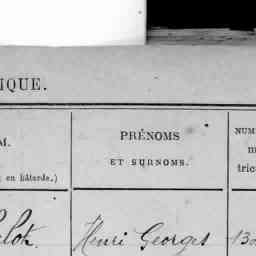 IQUE.
M.
en bâtarde.)
PRÉNOMS
ET SURNOMS.
NUM
m
tric
Henri Georges